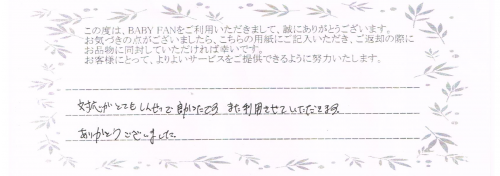 この度は、BABY FANをご利用いただきまして、誠にありがとうございます。
お気づきの点がございましたら、こちらの用紙にご記入いただき、ご返却の際に
お品物に同封していただければ幸いです。
お客様にとって、よりよいサービスをご提供できるように努力いたします。
対応がとてもしんせつで良かったです また利用させていただきます
ありがとうございました